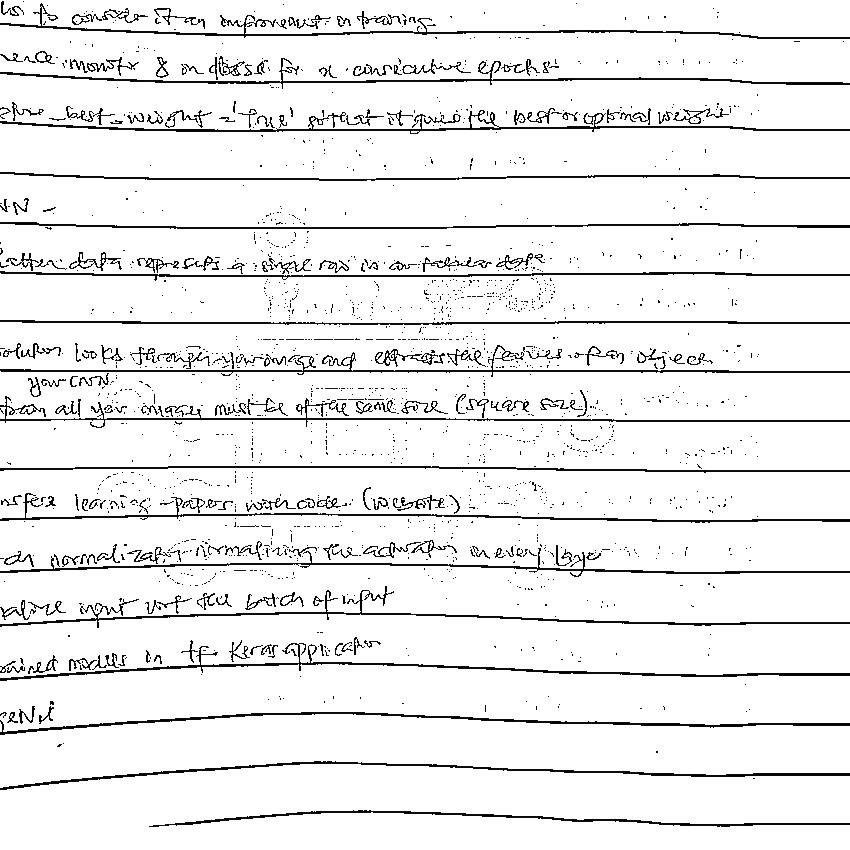 to consider it an improvement in training
monitor & on dloss for n consecutive epochs
_best_weight = 'True' so that it gives the best or optimal weight
NN -
data represents a single row in a data
looks through your image and the features of an object
your CNN
all your images must be of the same size (square size).
learning - papers with code (website)
normalization normalizing the activation in every layer
input wrt the batch of input
models in tf. Keras application
geNet